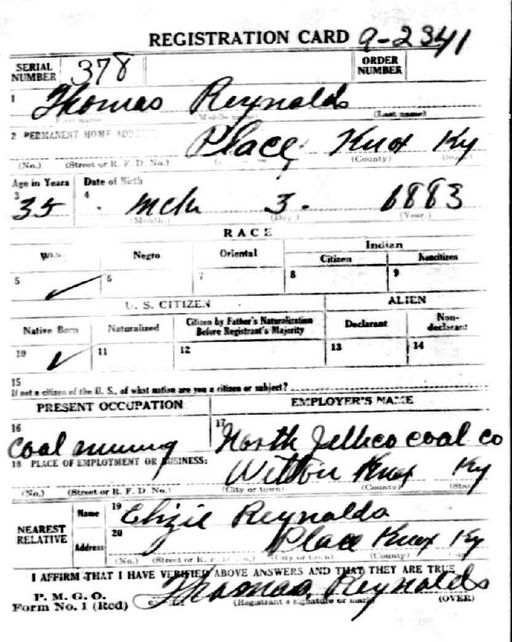 REGISTRATION CARD 9-2341
SERIAL NUMBER 378 ORDER NUMBER
1 Thomas Reynolds
(Last name)
2 PERMANENT HOME Place Knox Ky
(No.) (Street or R. F. D. No.) (County)
Age in Years Date of Birth
3 35 4 Mch 3. 1883
(Month) (Day) (Year)
RACE
Negro Oriental Indian
Citizen Noncitizen
5 ✓ 6 7 8 9
U. S. CITIZEN ALIEN
Native Born Naturalized Citizen by Father's Naturalization Before Registrant's Majority Declarant Non-declarant
10 ✓ 11 12 13 14
15
If not a citizen of the U. S., of what nation are you a citizen or subject?
PRESENT OCCUPATION EMPLOYER'S NAME
16 Coal mining 17 North Jellico Coal Co
18 PLACE OF EMPLOYMENT OR BUSINESS: Knox Ky
(No.) (Street or R. F. D. No.) (City or town) (County) (State)
NEAREST RELATIVE Name 19 Reynolds
Address 20 Place Knox Ky
(No.) (Street or R. F. D. No.) (City or town) (County) (State)
I AFFIRM THAT I HAVE VERIFIED ABOVE ANSWERS AND THAT THEY ARE TRUE
P. M. G. O.
Form No. 1 (Red) Thomas Reynolds
(Registrant's signature or mark) (OVER)